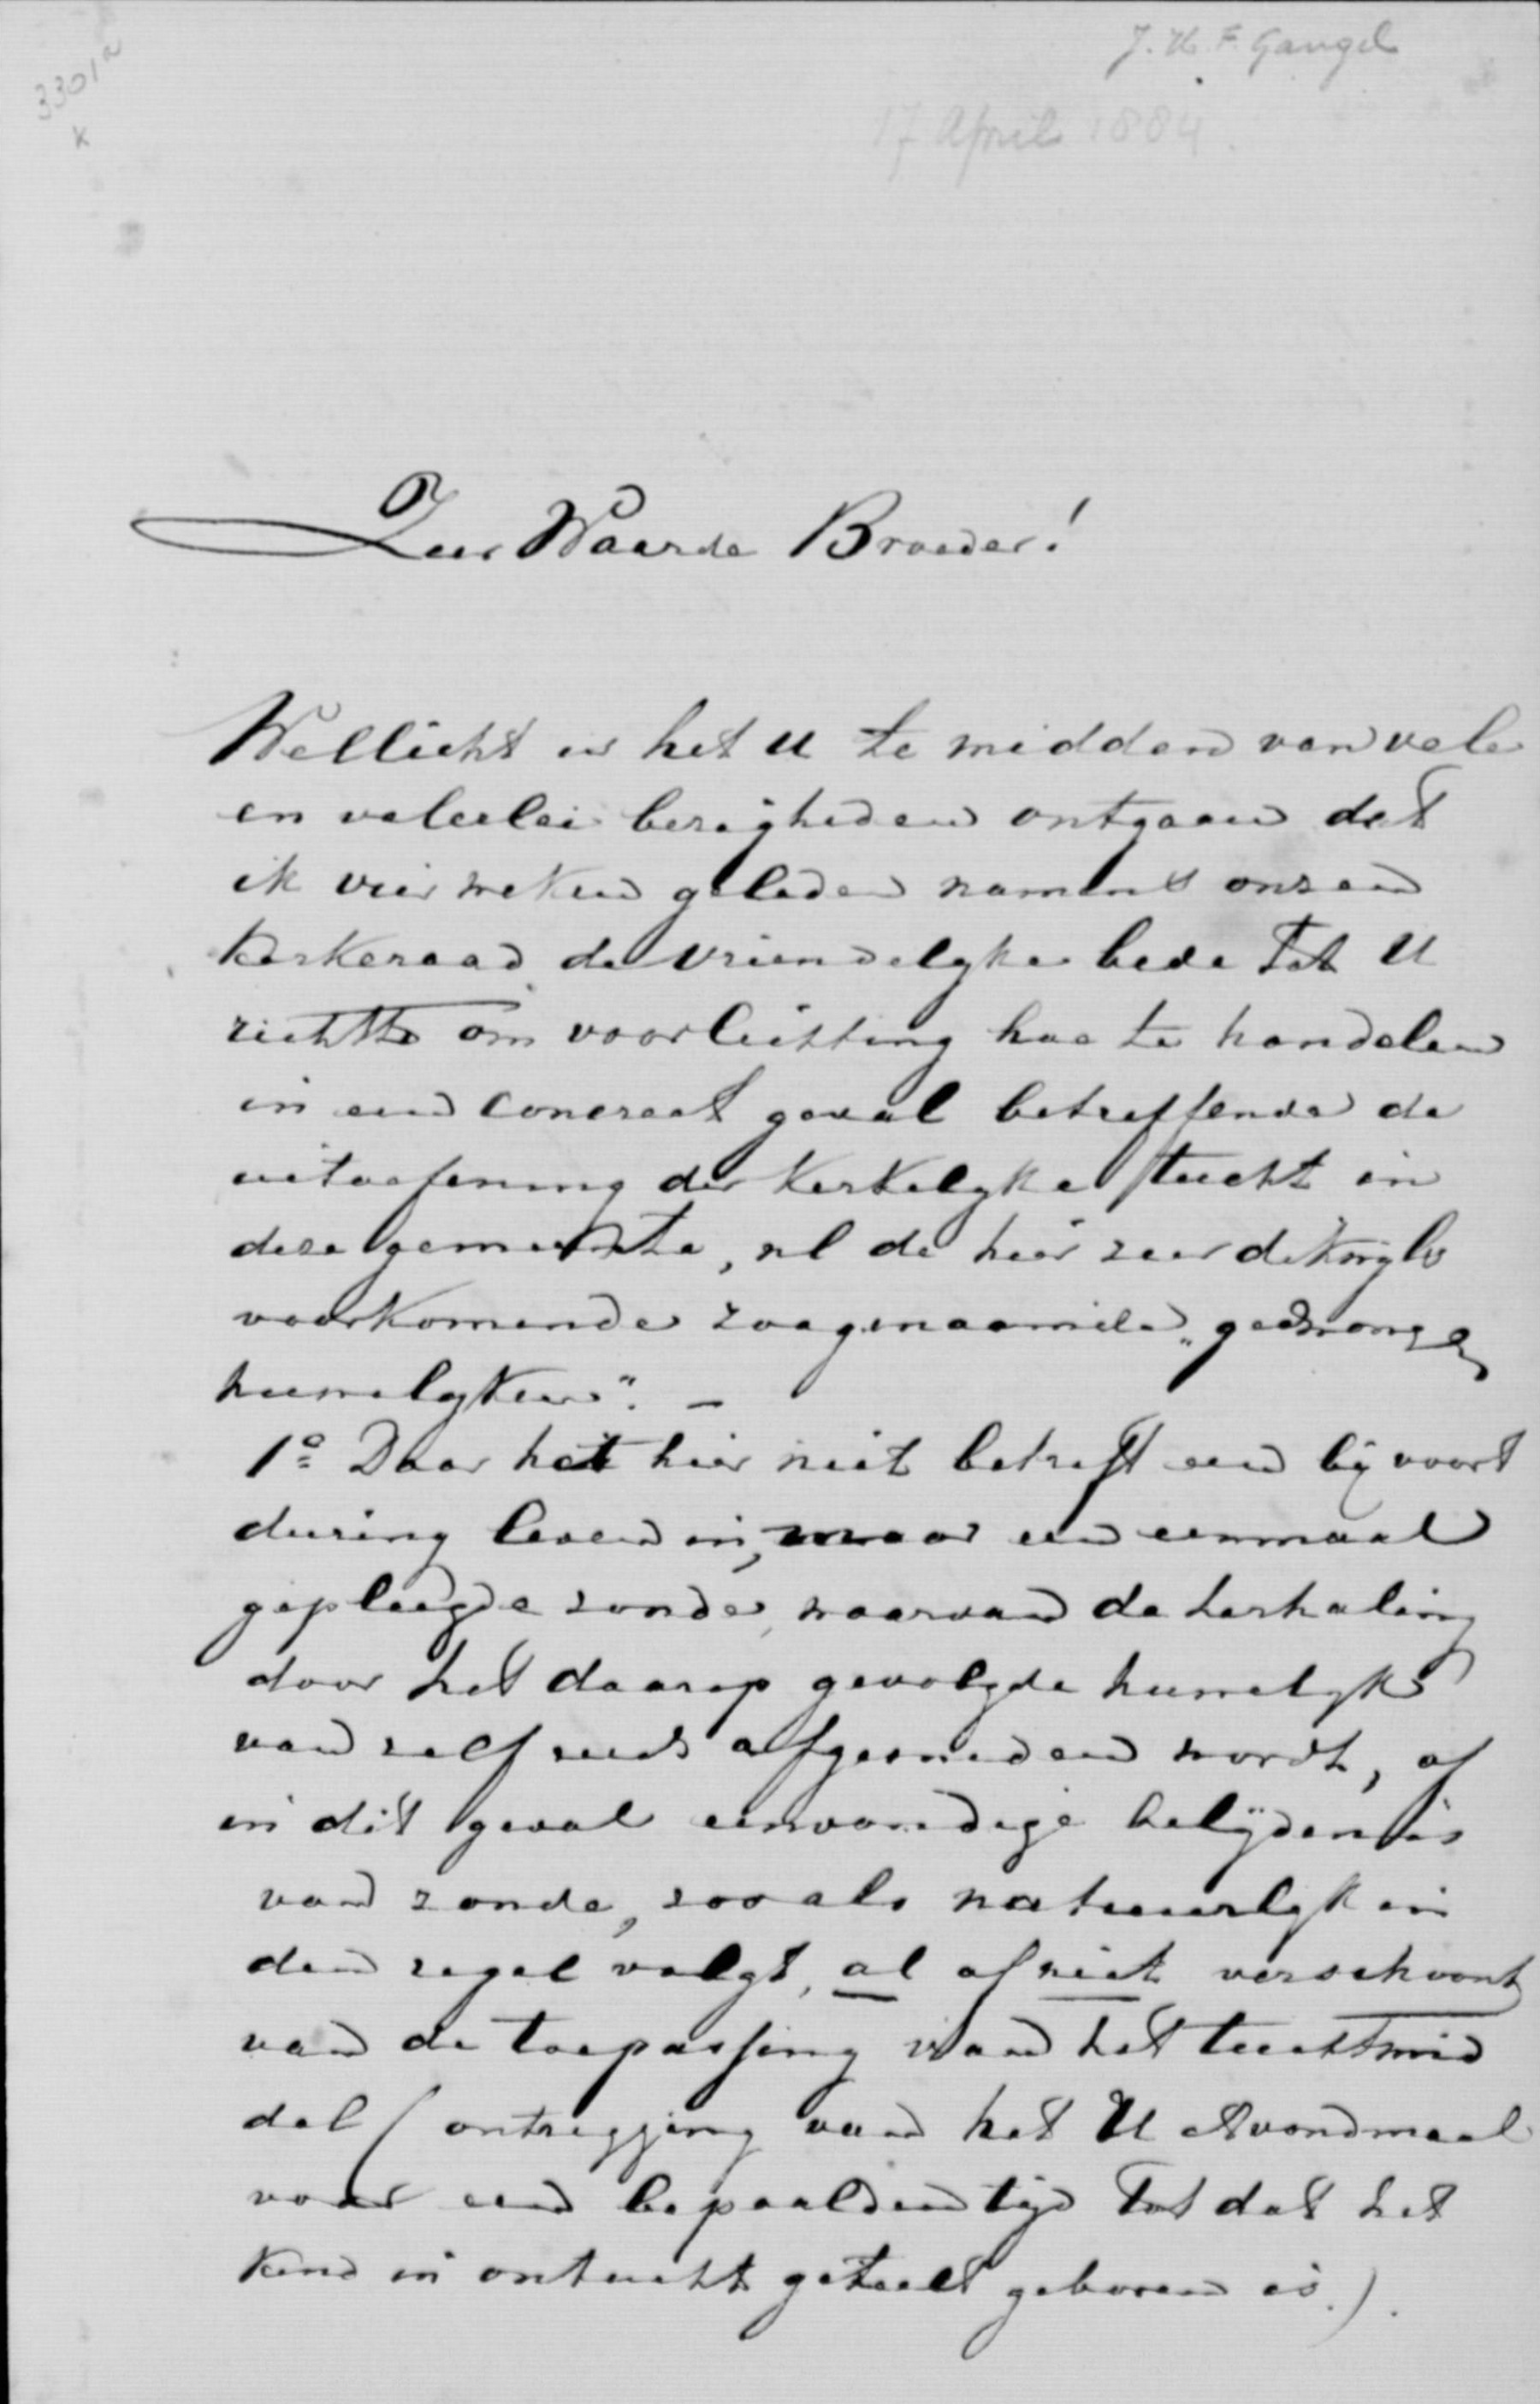 J. H. F. Gangel
3301a
K
17 April 1884.
Zeer Waarde Broeder!
Wellicht is het U te midden van vele
en velerlei bezigheden ontgaan dat
ik vier weken geleden namens onzen
Kerkeraad de vriendelyke bede tot U
richtte om voorlichting hoe te handelen
in een concreet geval betreffende de
uitoefening der Kerkelyke tucht in
deze gemeente, nl de hier zeer dikwyls
voorkomende zoogenaamde „gedwongen
huwelyken". —
1º Daar het hier niet betreft een bij voort
during leven in, maar een eenmaal
gepleegde zonde, waarvan de herhaling
door het daarop gevolgde huwelyk
van zelf reeds afgesneden wordt, of
in dit geval eenvoudige belijdenis
van zonde, zooals natuurlyk in
den regel volgt, al of niet verschoont
van de toepassing van het tuchtmid
del (ontzegging van het H Avondmaal
voor een bepaalden tijd tot dat het
Kind in ontucht geteelt geboren is.).